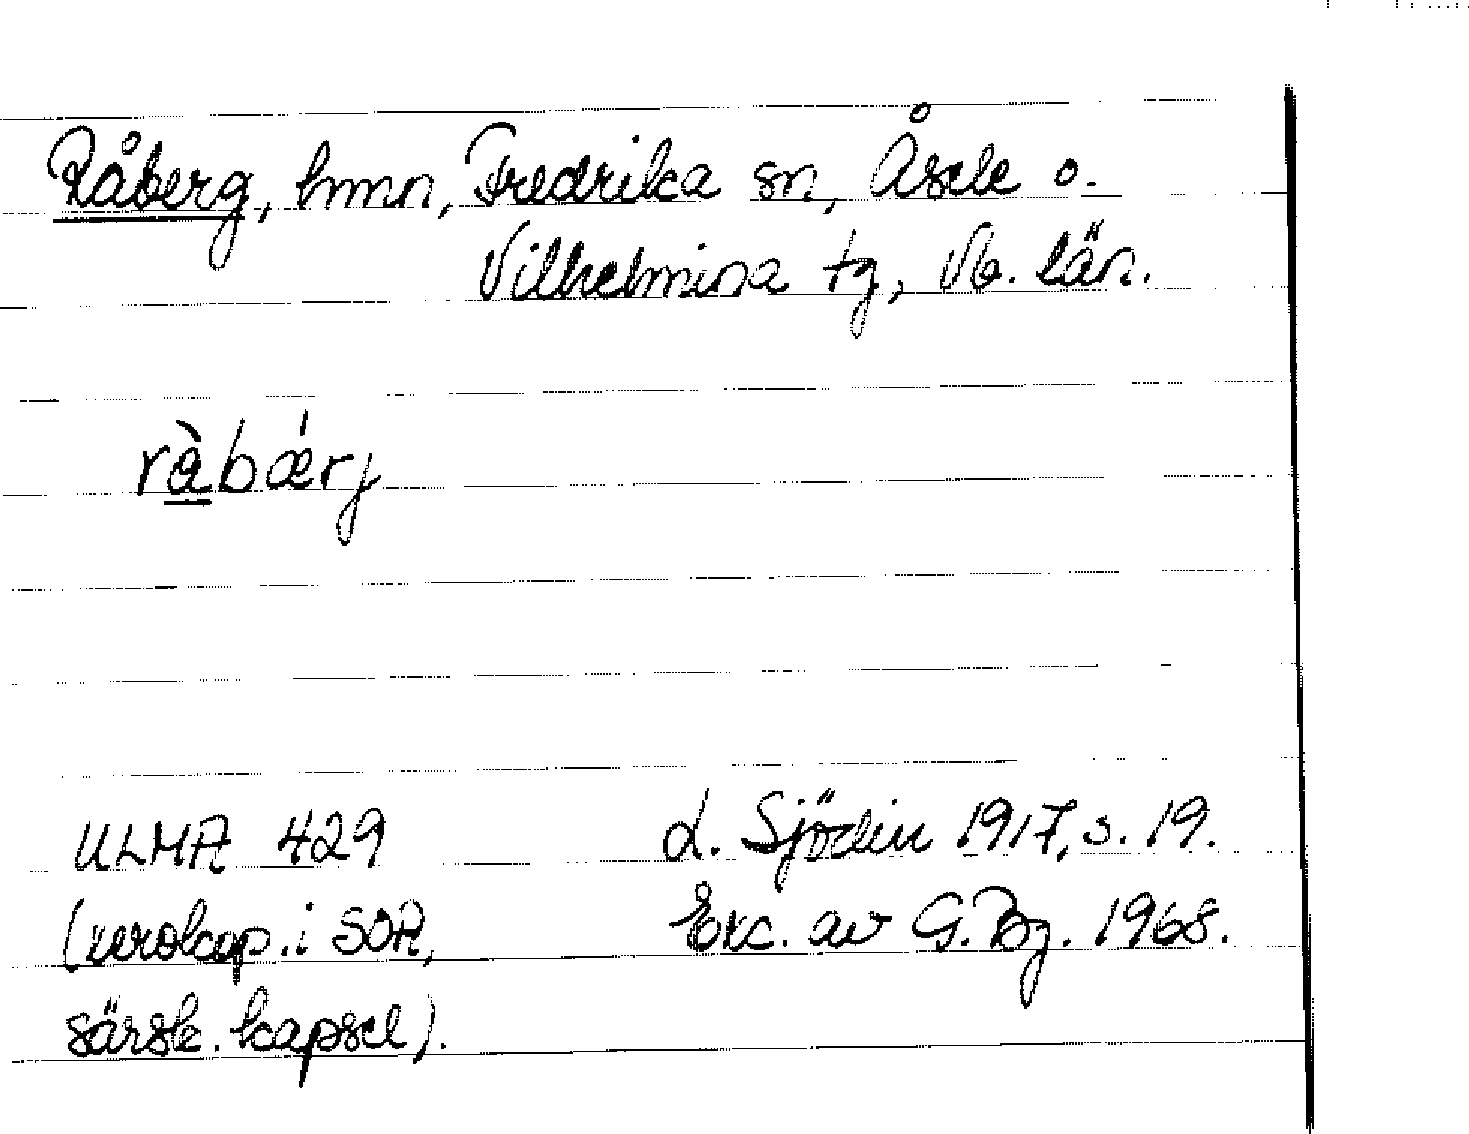 Råberg, hmn, Fredrika sn, Åsele o.
Vilhelmina tg, Vb. län.
rå̀bǽrj
ULMA 429
(xerokop. i SOA,
särsk. kapsel).
L. Sjödin 1917, s. 19.
Exc. av G. Bg. 1968.